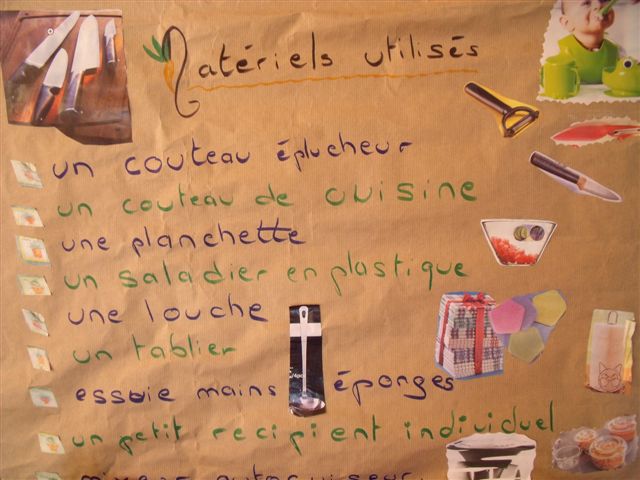 Matériels utilisés
un couteau éplucheur
un couteau de cuisine
une planchette
un saladier en plastique
une louche
un tablier
essuie mains éponges
un petit recipient individuel